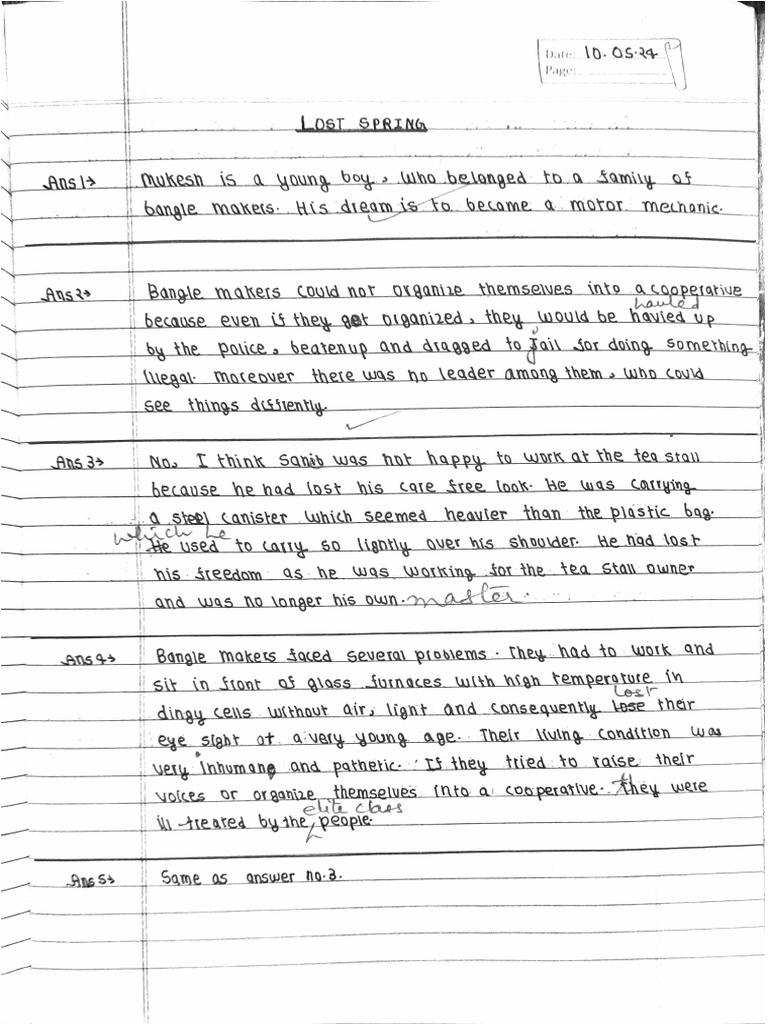 Date: 10.05.24
Page:
LOST SPRING
Ans 1→ Mukesh is a young boy, who belonged to a family of
bangle makers. His dream is to become a motor mechanic.
Ans 2→ Bangle makers could not organize themselves into a cooperative
hauled
because even if they get organized, they would be havied up
by the police, beatenup and dragged to Jail for doing something
illegal. moreover there was no leader among them, who could
see things diffrently.
Ans 3→ No, I think Sahib was not happy to work at the tea stall
because he had lost his care free look. He was carrying
a steel canister which seemed heavier than the plastic bag.
which he
He used to carry so lightly over his shoulder. He had lost
his freedom as he was working for the tea stall owner
and was no longer his own. master.
Ans 4→ Bangle makers faced several problems. They had to work and
sit in front of glass furnaces with high temperature in
lost
dingy cells without air, light and consequently lose their
eye sight at a very young age. Their living condition was
very inhumane and pathetic. If they tried to raise their
voices or organize themselves into a cooperative. they were
elite class
ill treated by the people.
Ans 5→ Same as answer no. 3.